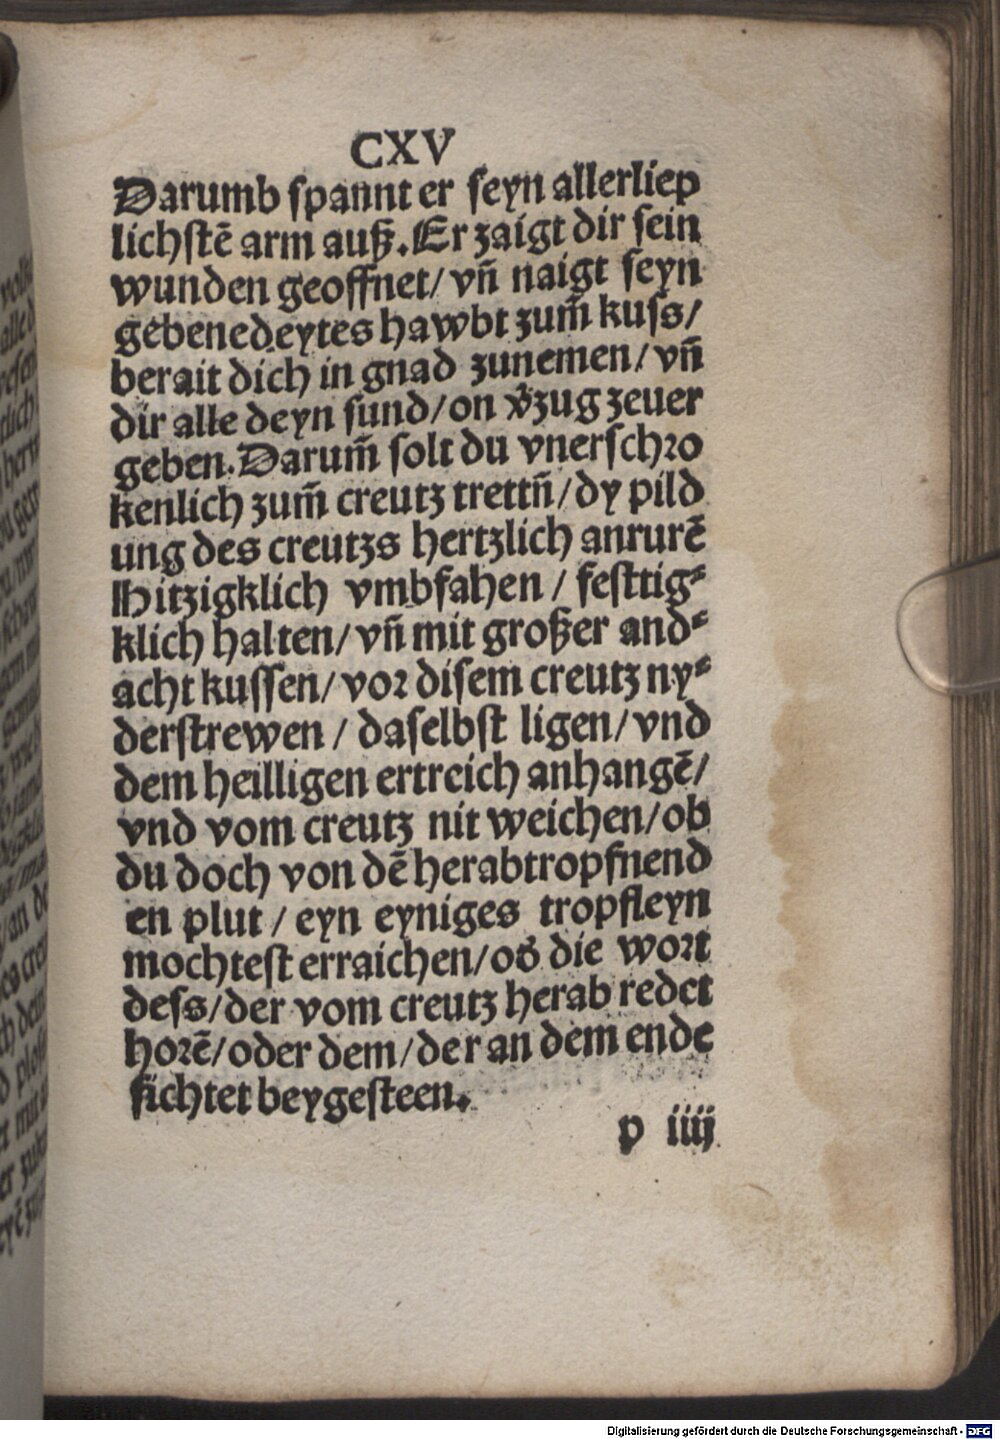 CXV
Darumb ſpannt er ſeyn allerliep
lichſtē arm auß. Er zaigt dir ſein
wunden geoffnet/ vn̄ naigt ſeyn
gebenedeytes hawbt zum̄ kuſs/
berait dich in gnad zunemen/ vn̄
dir alle deyn ſund/ on v̄zug zeuer
geben. Darum̄ ſolt du vnerſchꝛo
kenlich zum̄ creutz trettn̄/ dy pild
ung des creutzs hertzlich anrurē
Hitzigklich vmbfahen / feſttig⸗
klich halten/ vn̄ mit großer and⸗
acht kuſſen/ voꝛ diſem creutz ny⸗
derſtrewen / daſelbſt ligen/ vnd
dem heilligen ertreich anhangē/
vnd vom creutz nit weichen/ ob
du doch von dē herabtropfnend
en plut / eyn eyniges tropfleyn
mochteſt erraichen/ ob die woꝛt
deſs/ der vom creutz herab redet
hoꝛē/ oder dem/ der an dem ende
ſichtet beygeſteen.
p iiij
Digitalisierung gefördert durch die Deutsche Forschungsgemeinschaft - DFG